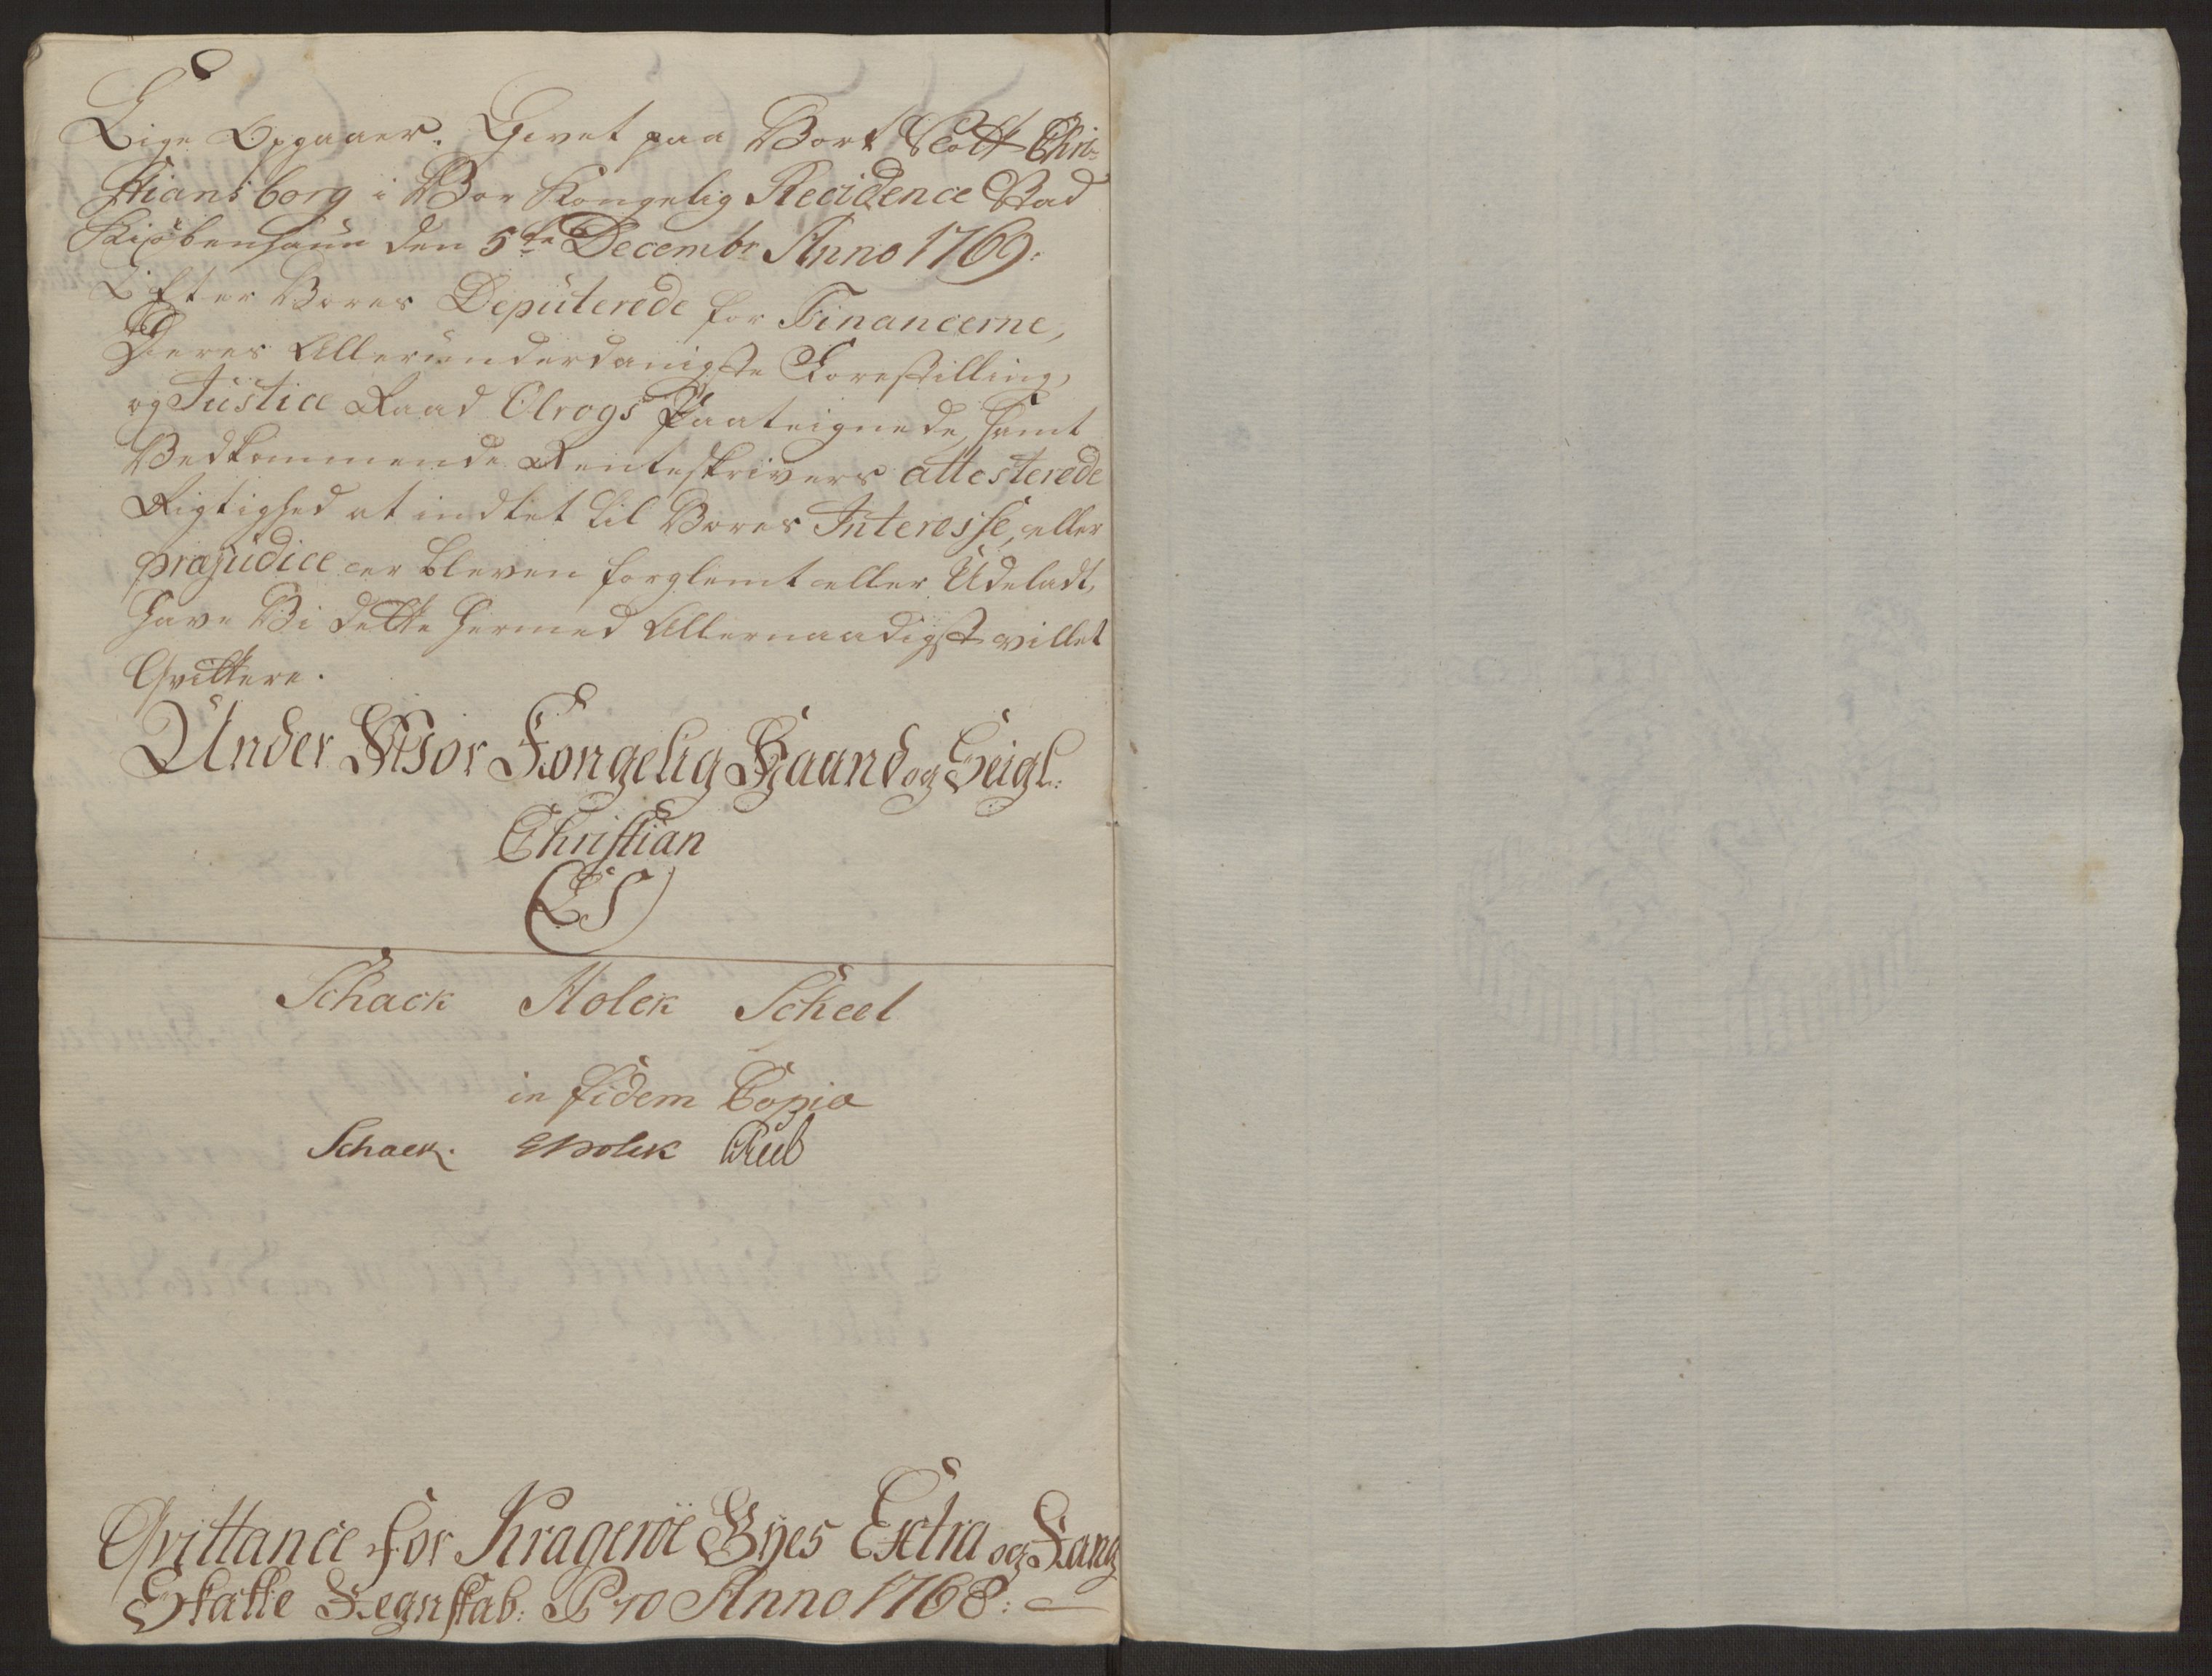 Lige Opgaaer. Givet paa Vort Slott Chri-
stiansborg i Vor Kongelig Recidence Stad
Kiøbenhaun den 5te Decembr Anno 1769:
Efter Vores Deputerede for Financerne,
Deres Allerunderdanigste Forestilling,
og Justice Raad Olrogs Paateignede, samt
Vedkommende Renteskrivers attesterede
Rigtighed at indtet til Vores Interesse, eller
præjudice er bleven forglemt eller Udeladt,
Have Vi dette hermed Allernaadigst villet
Qvittere.
Under Vor Kongelig Haand og Seigl:
Christian
LS
Schack Holck Scheel
in fidem Copia
Schack. Holck
Qvittance for Krageröe Byes Extra og Rang
Skatte Regnskab: Pro Anno 1768: